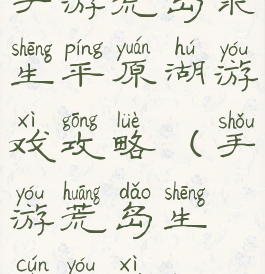 手游荒岛求
shēng píng yuán hú yóu
生平原湖游
xì gōng lüè shǒu
戏攻略(手
yóu huāng dǎo shēng
游荒岛生
cún yóu xì